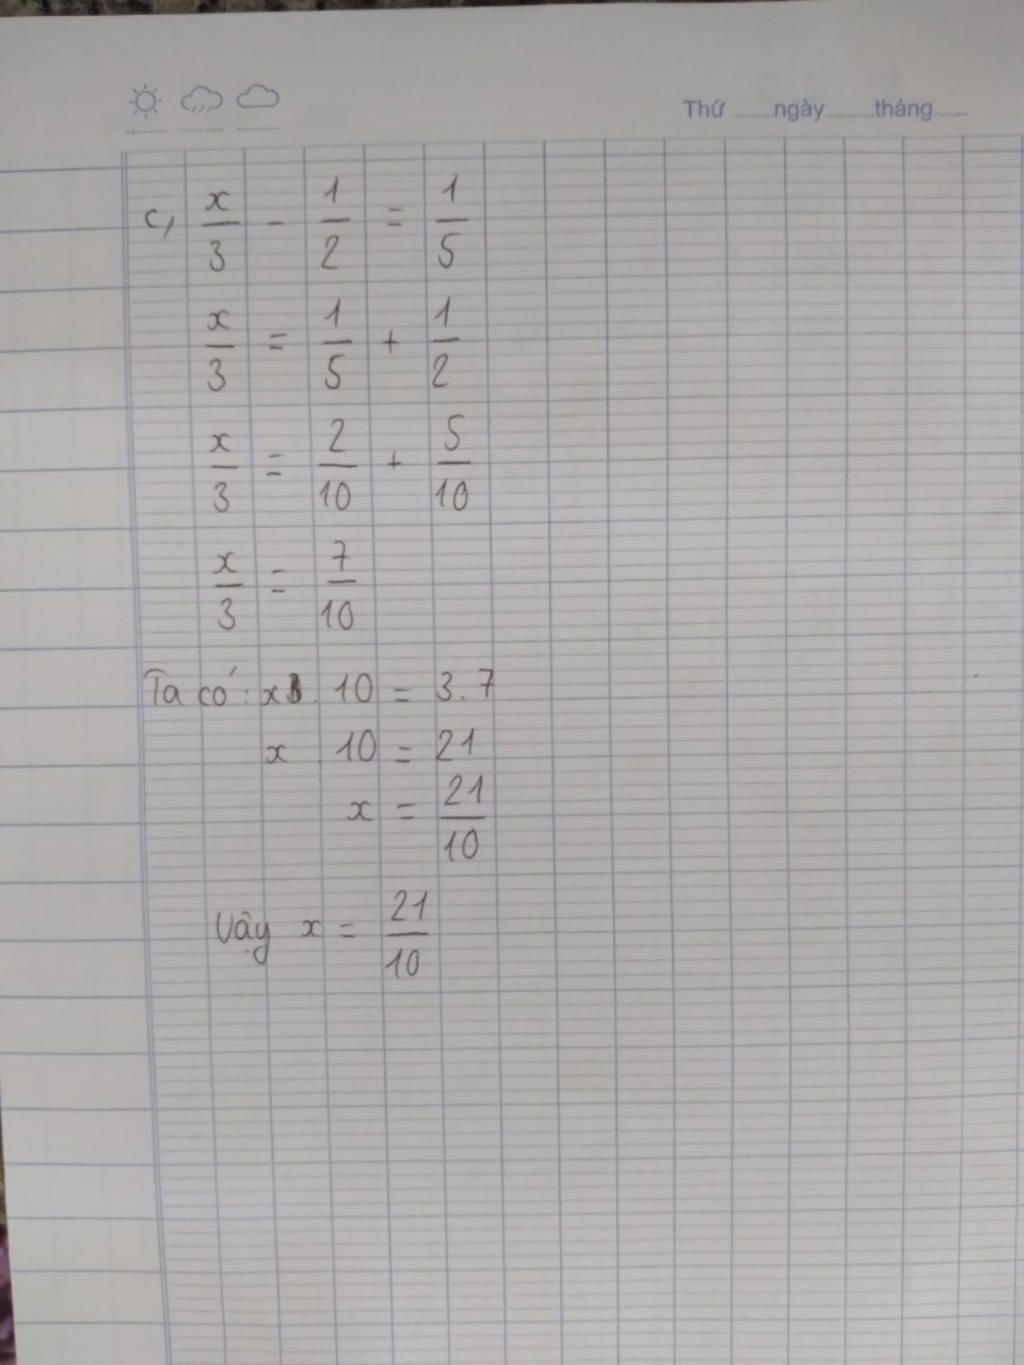 Thứ ........ngày.........tháng......
c, x/3 - 1/2 = 1/5
x/3 = 1/5 + 1/2
x/3 = 2/10 + 5/10
x/3 = 7/10
Ta có: x . 10 = 3.7
x 10 = 21
x = 21/10
Vậy x = 21/10